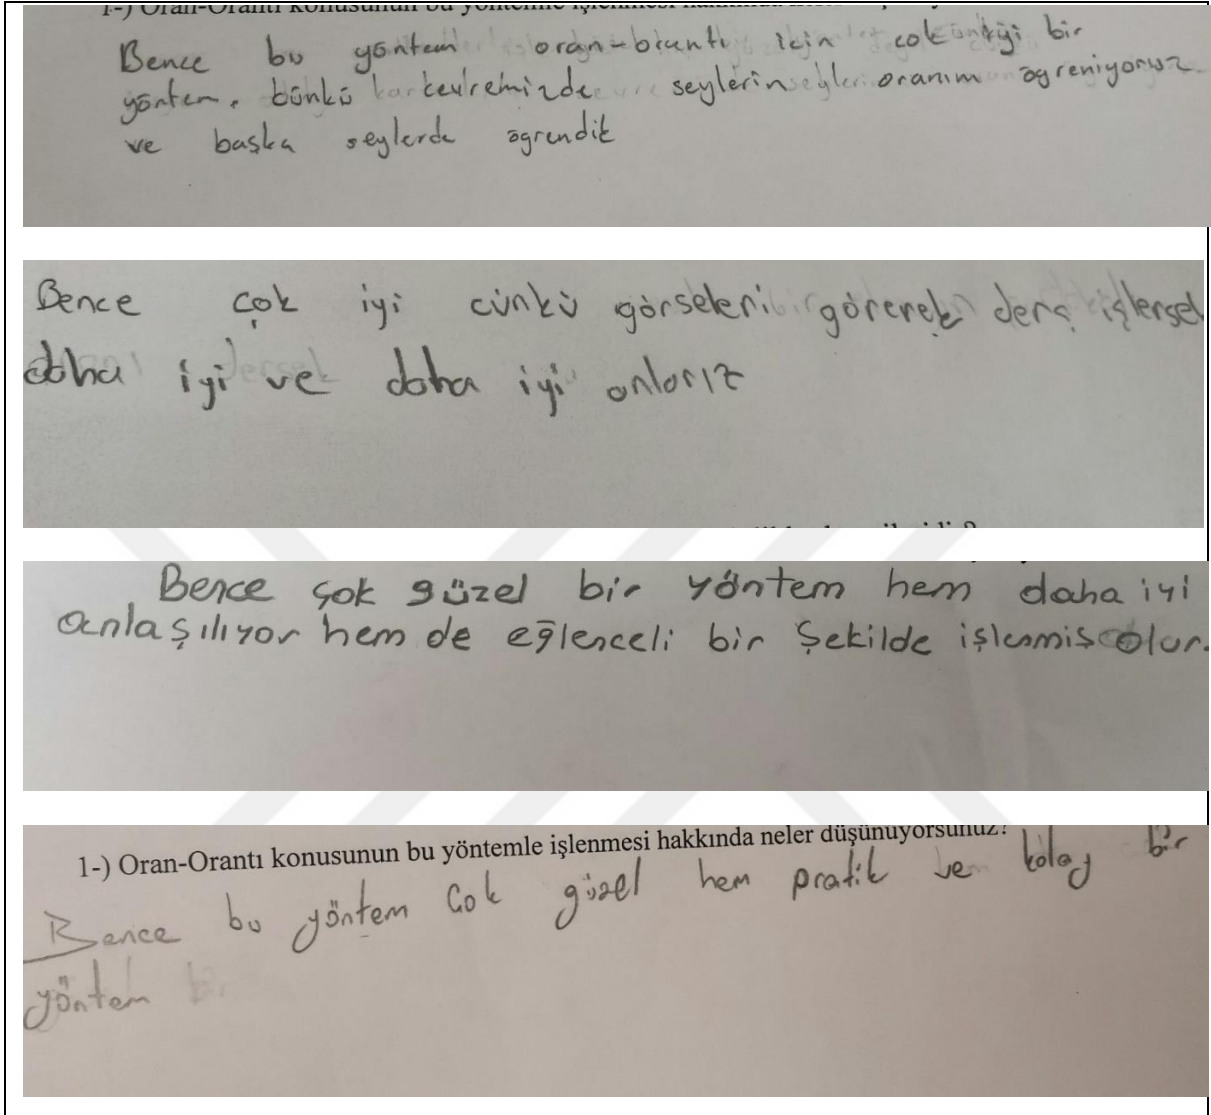 1-) Oran-Orantı konusunun bu yöntemle işlenmesi hakkında
Bence bu yöntem oran-orantı icin cok iyi bir
yöntem. bünkü cevremizde seylerin oranını ögreniyoruz
ve başka seylerde ögrendik
Bence çok iyi cünkü görseleri görerek ders işlersek
daha iyi ve daha iyi anlarız
Bence çok güzel bir yöntem hem daha iyi
anlaşılıyor hem de eğlenceli bir şekilde işlenmiş olur.
1-) Oran-Orantı konusunun bu yöntemle işlenmesi hakkında neler düşünüyorsunuz?
Bence bu yöntem çok güzel hem pratik ve kolay bir
yöntem